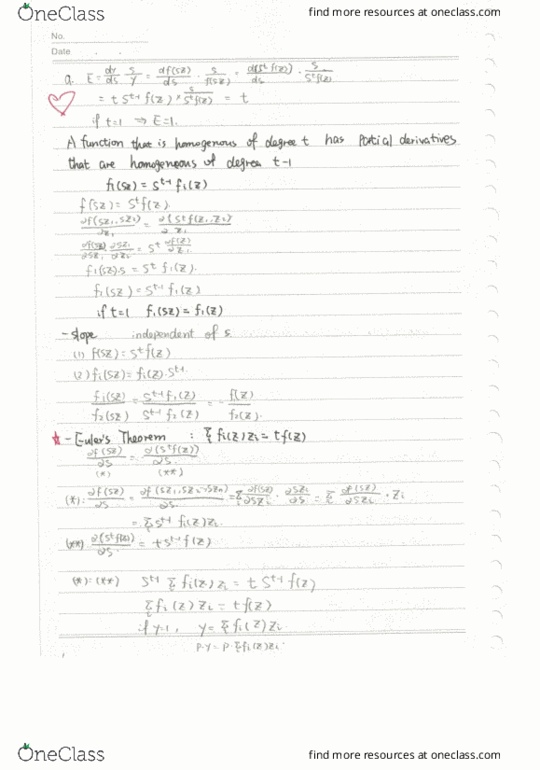 OneClass
find more resources at oneclass.com
No.
Date
a. E = dy/ds s/y = df(sz)/ds · s/f(sz) = d(s^t f(z))/ds · s/s^t f(z)
= t s^t-1 f(z) × s/s^t f(z) = t
if t=1 ⇒ E=1.
A function that is homogenous of degree t has partial derivatives
that are homogeneous of degree t-1
fi(sz) = s^t-1 fi(z)
f(sz) = s^t f(z)
∂f(sz1, sz2)/∂z1 = ∂(s^t f(z1, z2))/∂z1
∂f(sz)/∂sz1 ∂sz1/∂z1 = s^t ∂f(z)/∂z1
f1(sz)·s = s^t f1(z).
f1(sz) = s^t-1 f1(z)
if t=1 f1(sz) = f1(z)
- slope independent of s
(1) f(sz) = s^t f(z)
(2) fi(sz) = fi(z)·s^t-1
f1(sz)/f2(sz) = s^t-1 f1(z)/s^t-1 f2(z) = - f(z)/f2(z).
☆ - Euler's Theorem : Σ fi(z) zi = t f(z)
∂f(sz)/∂s = ∂(s^t f(z))/∂s
(*) (**)
(*): ∂f(sz)/∂s = ∂f(sz1, sz2 ... szn)/∂s = Σ ∂f(sz)/∂szi · ∂szi/∂s = Σ ∂f(sz)/∂szi · zi
= Σ s^t-1 fi(z) zi
(**) ∂(s^t f(z))/∂s = t s^t-1 f(z)
(*) : (**) s^t-1 Σ fi(z) zi = t s^t-1 f(z)
Σ fi(z) zi = t f(z)
if y=1, y = Σ fi(z) zi
p·y = p · Σ fi(z) zi
OneClass
find more resources at oneclass.com